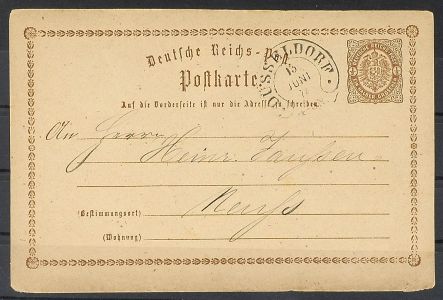 Deutsche Reichs-Post
Postkarte
DUSSELDORF
15
JUNI
Auf die Vorderseite ist nur die Adresse zu schreiben.
An Herrn
Heinr. Janssen
Neuss
(Bestimmungsort)
(Wohnung)